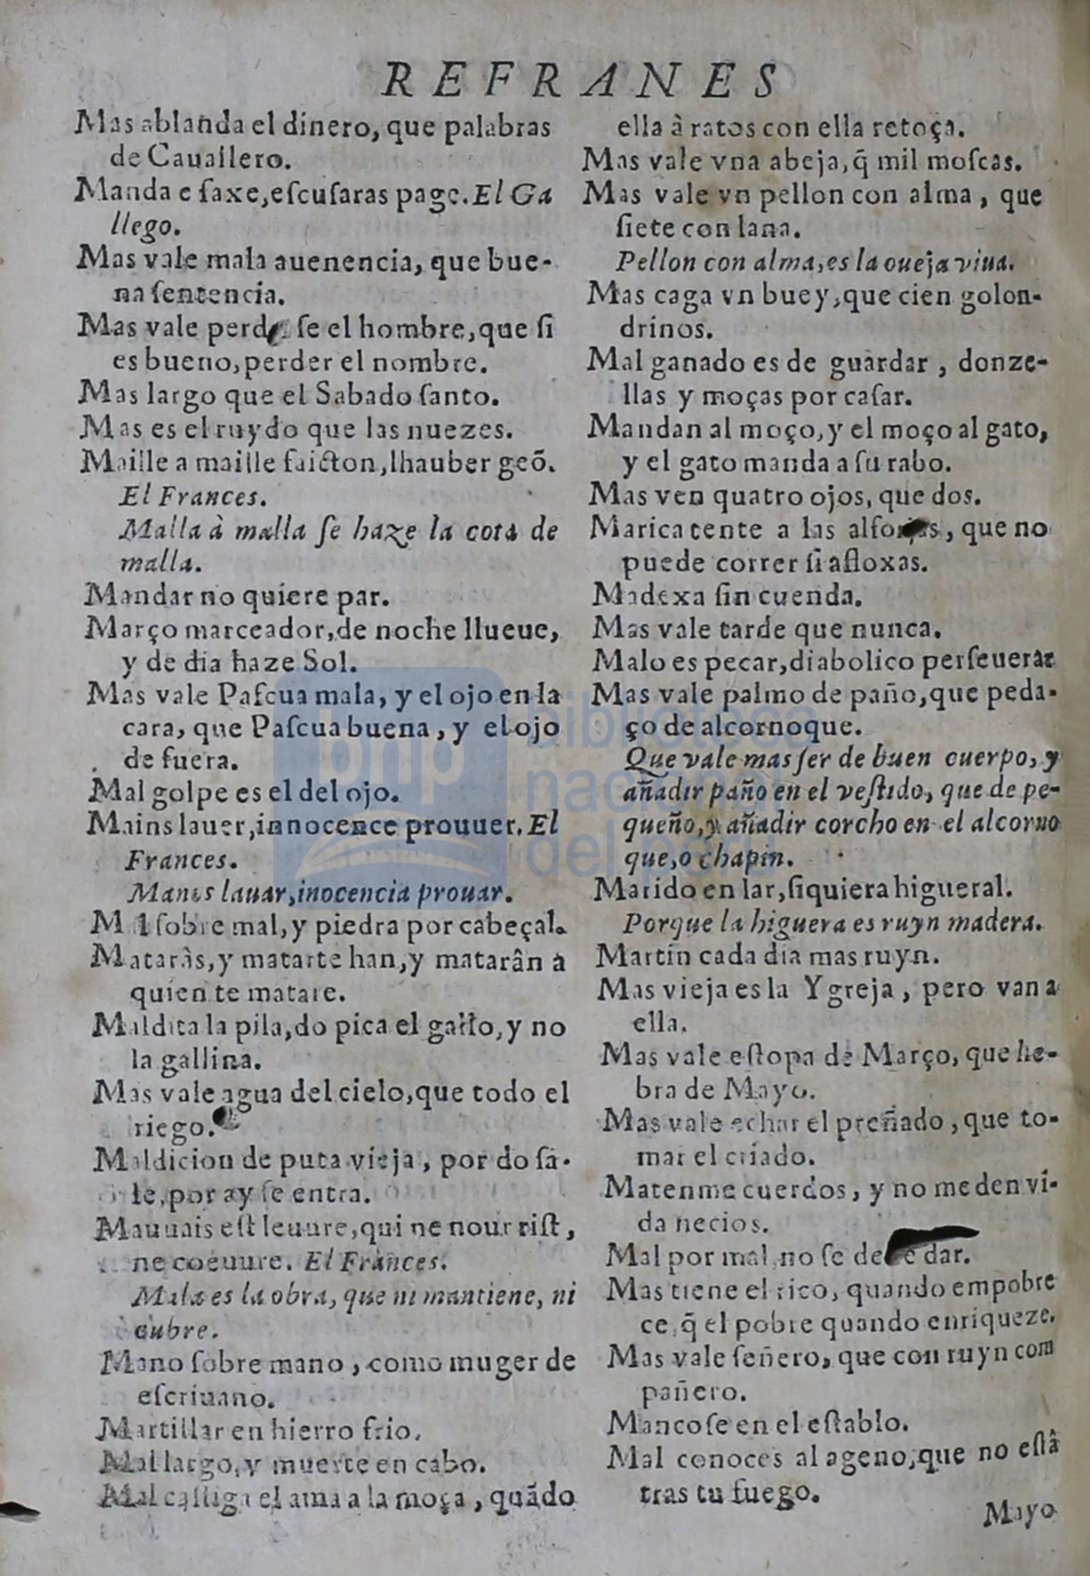 REFRANES
Mas ablanda el dinero, que palabras
de Cauallero.
Manda e faxe, eſcuſaras page. El Ga
llego.
Mas vale mala auenencia, que bue-
na ſentencia.
Mas vale ſe el hombre, que ſi
es bueno, perder el nombre.
Mas largo que el Sabado ſanto.
Mas es el ruydo que las nuezes.
Maille a maille faicton, lhauber geõ.
El Frances.
Malla à malla ſe haze la cota de
malla.
Mandar no quiere par.
Março marceador, de noche llueue,
y de dia haze Sol.
Mas vale Paſcua mala, y el ojo en la
cara, que Paſcua buena, y el ojo
de fuera.
Mal golpe es el del ojo.
Mains lauer, innocence prouuer. El
Frances.
Manos lauar, inocencia prouar.
Mal ſobre mal, y piedra por cabeçal.
Mataràs, y matarte han, y matarân a
quien te matare.
Maldita la pila, do pica el gallo, y no
la gallina.
Mas vale agua del cielo, que todo el
riego.
Maldicion de puta vieja, por do ſa-
le, por ay ſe entra.
Mauuais eſt leuure, qui ne nourriſt,
ne coeuure. El Frances.
Mala es la obra, que ni mantiene, ni
cubre.
Mano ſobre mano, como muger de
eſcriuano.
Martillar en hierro frio.
Mal largo, y muerte en cabo.
Mal caſtiga el ama a la moça, quãdo
ella à ratos con ella retoça.
Mas vale vna abeja, q̃ mil moſcas.
Mas vale vn pellon con alma, que
ſiete con lana.
Pellon con alma, es la oueja viua.
Mas caga vn buey, que cien golon-
drinos.
Mal ganado es de guardar, donze-
llas y moças por caſar.
Mandan al moço, y el moço al gato,
y el gato manda a ſu rabo.
Mas ven quatro ojos, que dos.
Marica tente a las alforjas, que no
puede correr ſi afloxas.
Madexa ſin cuenda.
Mas vale tarde que nunca.
Malo es pecar, diabolico perſeuerar
Mas vale palmo de paño, que peda-
ço de alcornoque.
Que vale mas ſer de buen cuerpo, y
añadir paño en el veſtido, que de pe-
queño, y añadir corcho en el alcorno
que, o chapin.
Marido en lar, ſiquiera higueral.
Porque la higuera es ruyn madera.
Martin cada dia mas ruyn.
Mas vieja es la Ygreja, pero van a
ella.
Mas vale eſtopa de Março, que he-
bra de Mayo.
Mas vale echar el preñado, que to-
mar el criado.
Matenme cuerdos, y no me den vi-
da necios.
Mal por mal no ſe dar.
Mas tiene el rico, quando empobre
ce, q̃ el pobre quando enriqueze.
Mas vale ſeñero, que con ruyn com
pañero.
Mancoſe en el eſtablo.
Mal conoces al ageno, que no eſtâ
tras tu fuego.
Mayo
bnp biblioteca
nacional
del perú